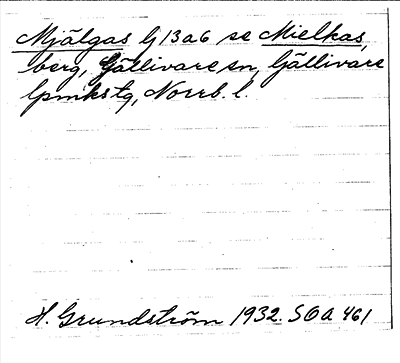 Mjälgas lj 13a6 se Mielkas,
berg, Gällivare sn, Gällivare
lpmkstg, Norrb. l.
H. Grundström 1932. SOA 461